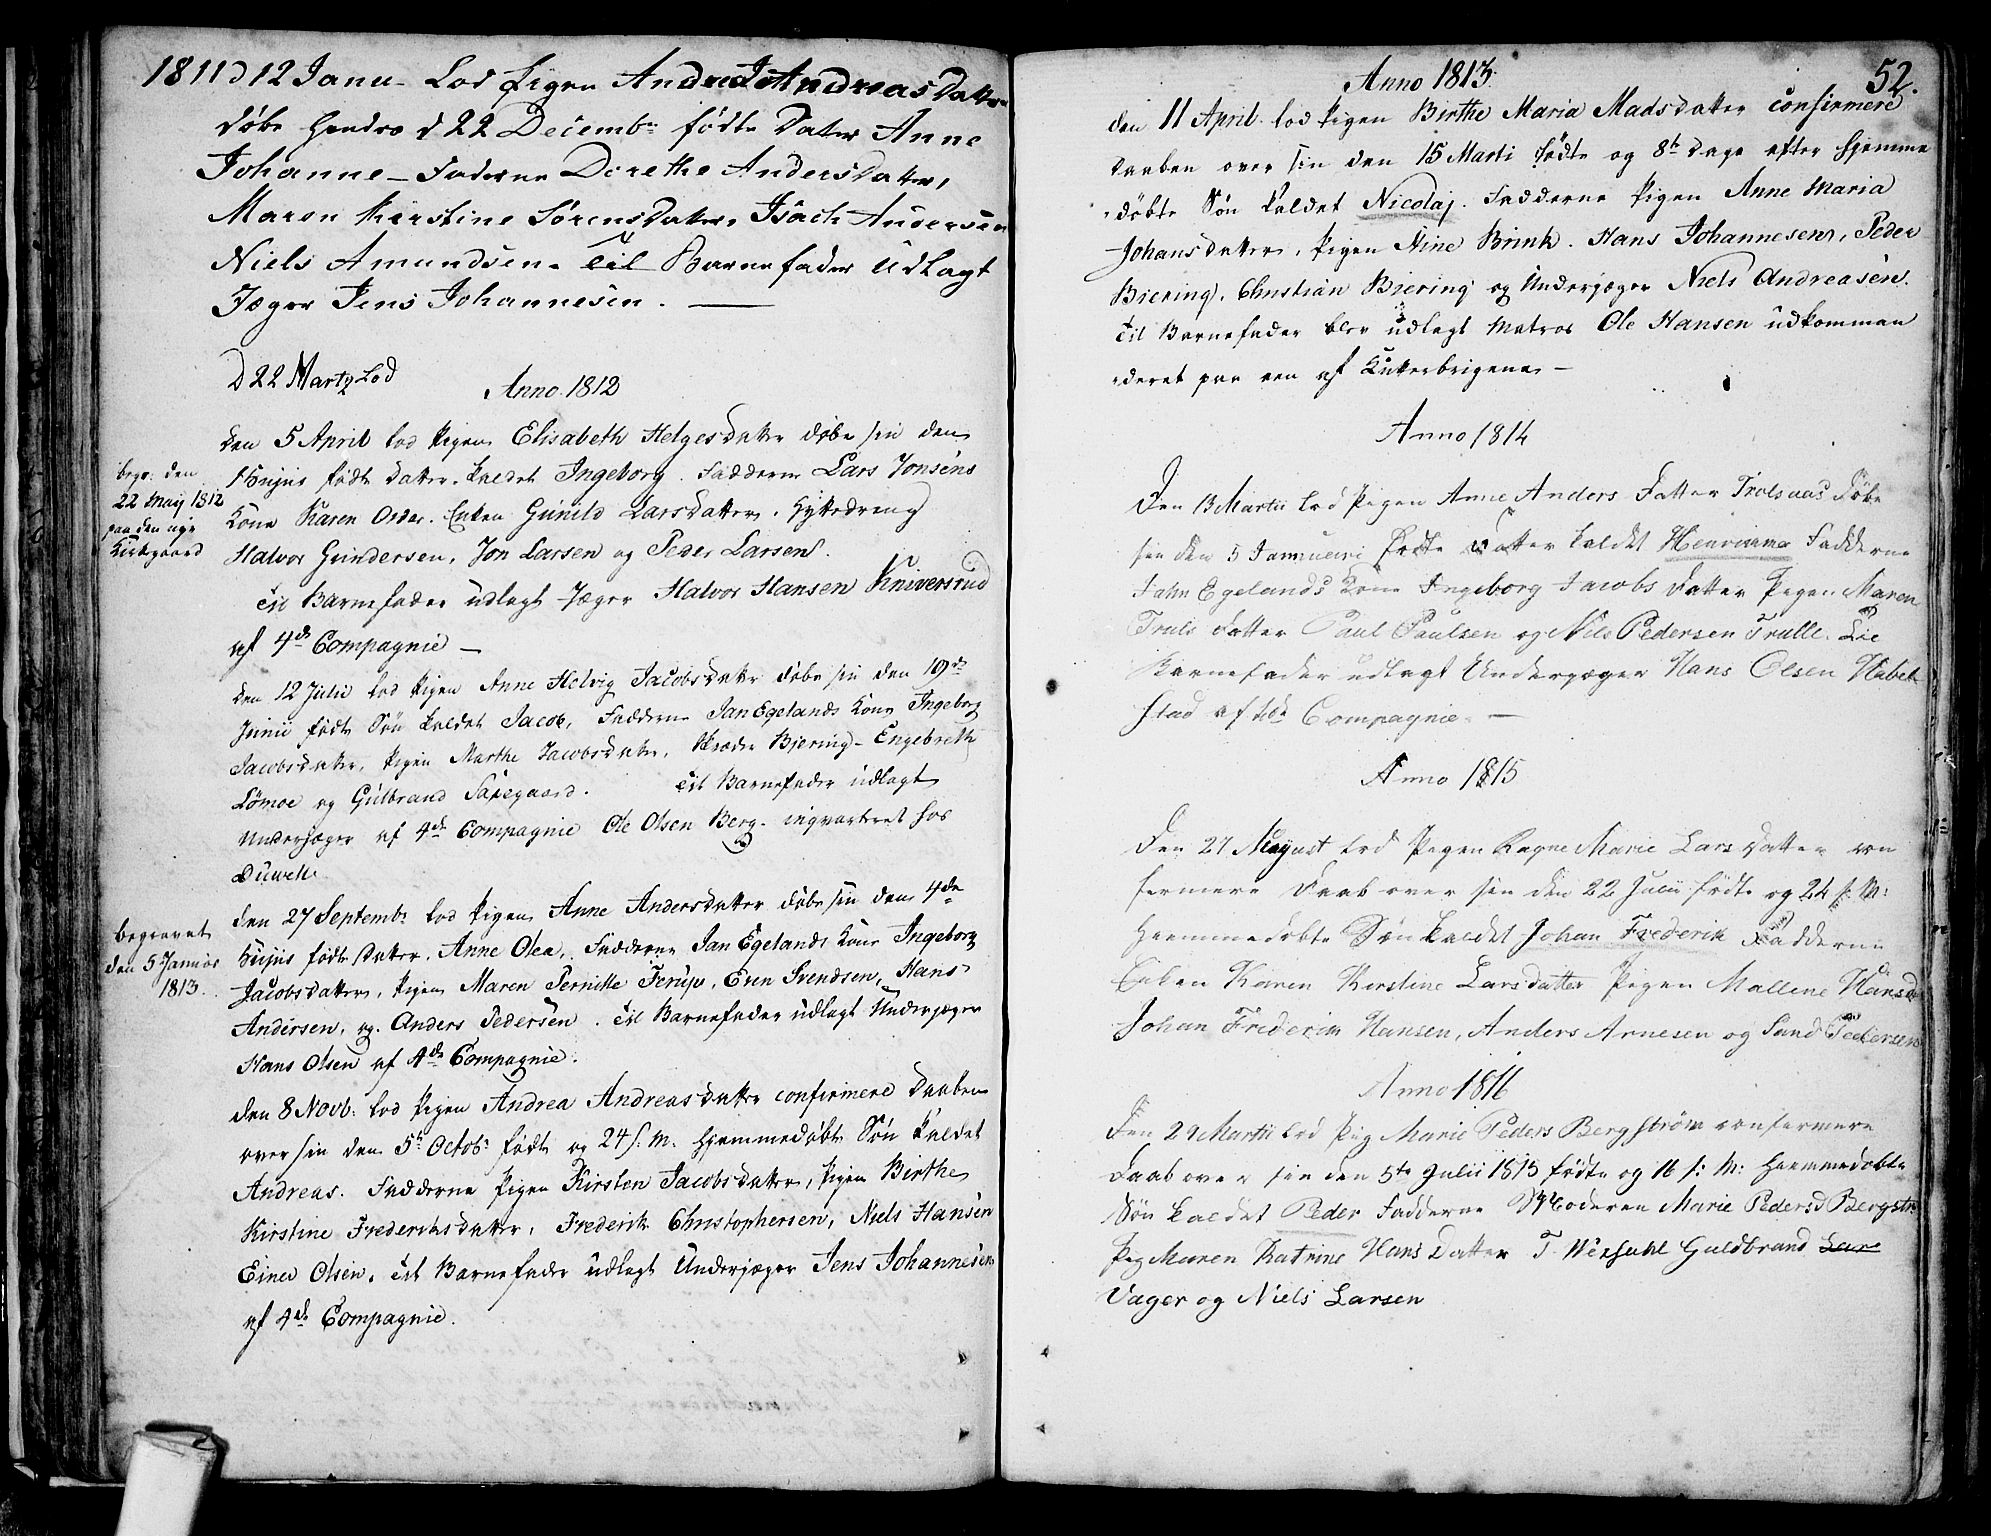 1811 d 12 Janu- Lod Pigen Andrea Andreas Datter
døbe hendes d 22 Decembr fødte Dater Anne
Johanne - Faderne Dorethe Anders Dater,
Maren Kirstine Sørens Dater, Isach Andersen
Niels Amundsen. Til Barnefader Udlagt
Jæger Jens Johannesen. —
D 22 Marty Lod
Anno 1812
den 5 April lod Pigen Elisabeth Helgesdatter døbe sin den
Hujus født Datter kaldet Ingeborg. Fadderne Lars Jonsens
Kone Karen Enken Gunild Larsdatter, Hyttedreng
Halvor Gundersen, Jon Larsen og Peder Larsen.
Til Barnefader udlagt Jæger Halvor Hansen Kniversrud
af 4de Compagnie —
begr: den
22 Maij 1812
paa den nye
Kirkgaard
den 12 Julii lod Pigen Anne Helvig Jacobsdatter døbe sin den 19de
Junii født Søn kaldet Jacob, Faddere Jan Egelands Kone Ingeborg
Jacobsdatter, Pigen Marthe Jacobsdatter, Bjering - Engebreth
Lømoe og Gulbrand Saxegaard. Til Barnefader udlagt
Underjæger af 4de Compagnie Ole Olsen Berg. inqvarteret hos
Duwell.
den 27 Septembr lod Pigen Anne Andersdatter døbe sin den 4de
Hujus født Datter, Anne Olea, Fadderne Jan Egelands Kone Ingeborg
Jacobsdatter, Pigen Maren Pernille Ferup, Even Svendsen, Hans
Andersen, og Anders Pedersen. Til Barnefader udlagt Underjæger
Hans Olsen af 4de Compagnie.
begravet
den 5 Januar
1813.
den 8 Novb: lod Pigen Andrea Andreasdatter confirmere Daaben
over sin den 5te Octobr født og 24 s: M. hjemmedøbt Søn kaldet
Andreas. Fadderne Pigen Kirsten Jacobsdatter, Pigen Birthe
Kirstine Frederiksdatter, Frederik Christophersen, Niels Hansen
Einer Olsen. Til Barnefader udlagt Underjæger Jens Johannesen
af 4de Compagnie.
52.
Anno 1813.
den 11 April lod Pigen Birthe Maria Madsdatter confirmere
Daaben over sin den 15 Marti fødte og 8te Dage efter hjemme
døbte Søn kaldet Nicolaj. Fadderne Pigen Anne Maria
Johansdatter, Pigen Stine Brink. Hans Johannesen, Peder
Biering, Christian Biering og Underjæger Niels Andreasen.
Til Barnefader blev udlagt Matros Ole Hansen udkomman
deret paa een af Kutterbrigene —
Anno 1814
Den 13 Martii lod Pigen Anne Anders Datter døbe
sin den 5 Januari fødte Datter kaldet Henriana Fadderne
Jahn Egelands Kone Ingeborg Jacobs Datter Pigen Maren
Truls Datter Paul Paulsen og Nils Pedersen Trulle. Til
Barnefader udlagt Underjæger Hans Olsen Habel
stad af 4de Compagnie. —
Anno 1815
Den 27 August lod Pigen Ragne Marie Lars Datter con
fermere Daab over sin den 22 Julii fødte og 24 s: M:
Hiemmedøbte Søn kaldet Johan Frederik Fadderne
Enken Karen Kirstine Larsdatter Pigen Mallene Hansd
Johan Frederik Hansen, Anders Arnesen og Pedersen
Anno 1816
Den 29 Martii lod Pig Marie Peders Bergstrøm confermere
Daab over sin den 5te Julii 1815 fødte og 16 s: M: Hiemmedøbte
Søn kaldet Peder Fadderne Moderen Marie Pedersd Bergstr
Pig Maren Katrine Hans Datter T. Guldbrand Lars
Vager og Niels Larsen